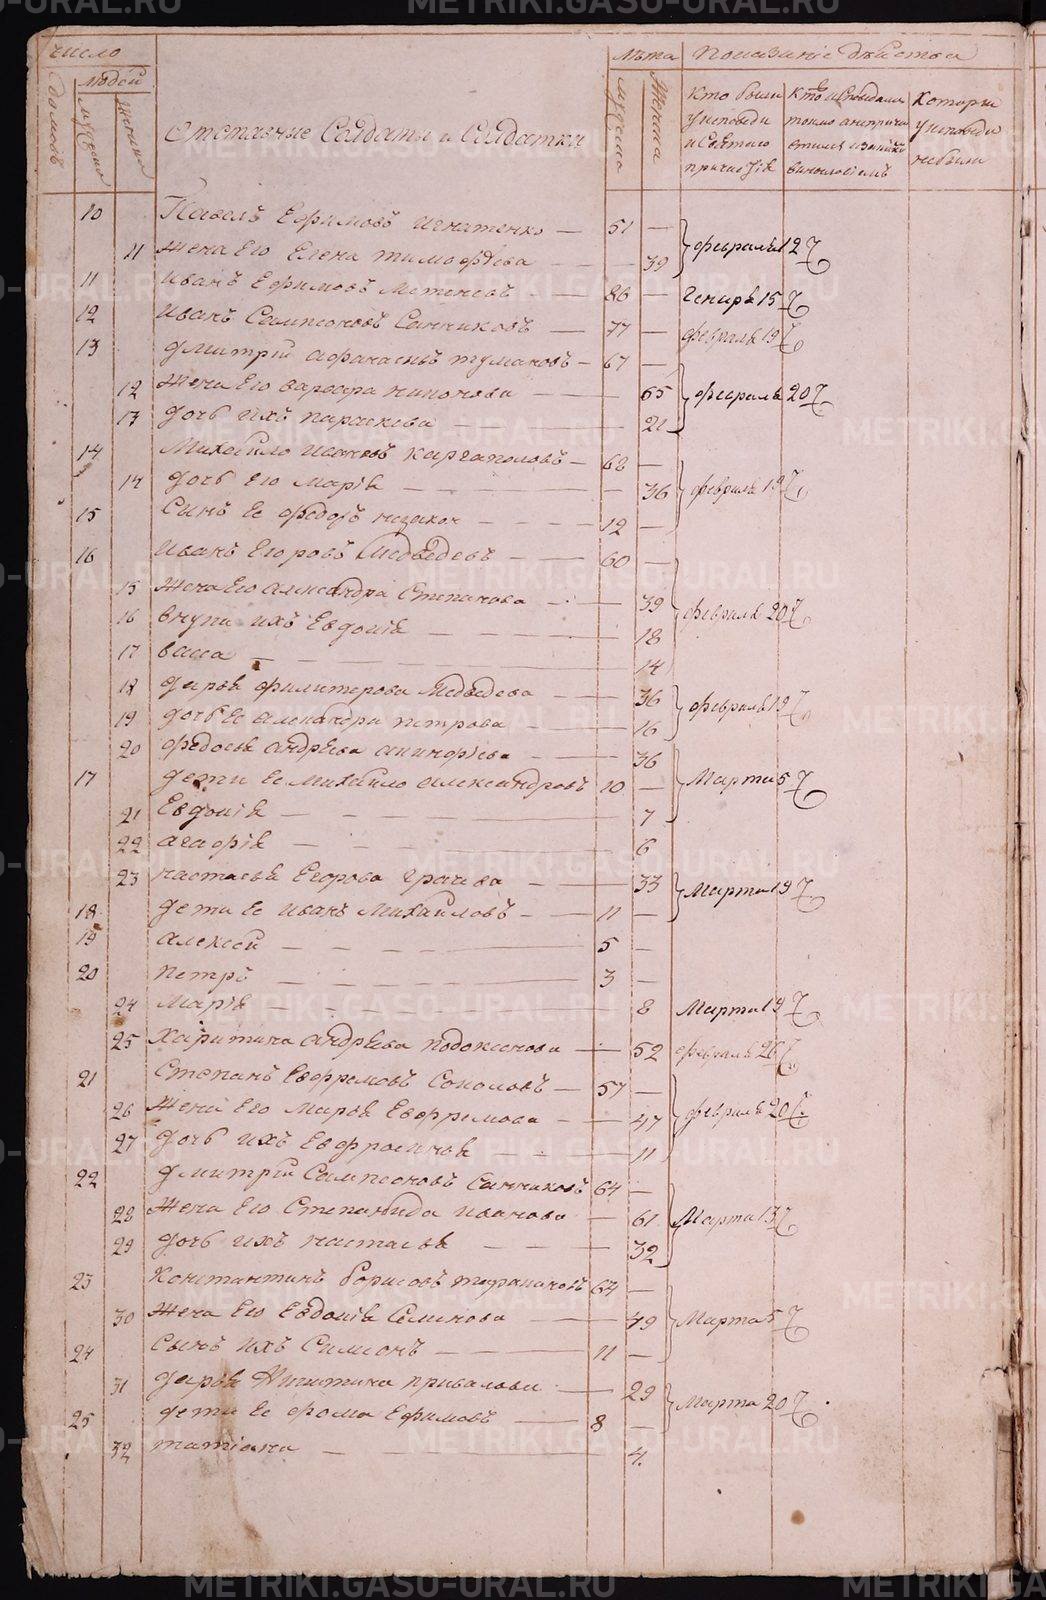 число
людей
домовъ
мужска
женска
Отставные Солдаты и Солдатки
лѣта
мужска
женска
Показаніе дѣйства
Кто были у исповѣди и Святаго причастія
Кто исповѣдались токмо а непричастились и за какимъ винословіемъ
Которые у исповѣди не были
10 Павелъ Ефимовъ Игнатенко — 51 —
11 Жена Его Елена Тимофѣева — — 39 февраля 12
11 Иванъ Ефимовъ — — 86 — Генваря 15
12 Иванъ Сампсоновъ Санниковъ — 77 — февраля 19
13 Дмитрій Афанасьевъ Тумаковъ — 67 —
12 Жена Его Варвара — — — 65 февраля 20
13 Дочь ихъ Параскева — — — 21
14 Михайло Ивановъ Каргаполовъ — 62 —
14 Дочь Его Марія — — — — 36 февраля 19
15 Сынъ Ее Федоръ незакон — — — 12 —
16 Иванъ Егоровъ Медвѣдевъ — — 60 —
15 Жена Его Александра Степанова — — 39 февраля 20
16 Внуки ихъ Евдокія — — — — 18
17 Васса — — — — 14
18 Дарья Филитерова Медвѣдева — — 36 февраля 19
19 Дочь Ее Александра Петрова — — 16
20 Федосья Андрѣева — — 36
17 Дети Ее Михайло Александровъ 10 — Марта 5
21 Евдокія — — — — 7
22 Агафія — — — — 6
23 Настасья Егорова Грачева — — 33 Марта 19
18 Дети Ее Иванъ Михайловъ — — 11 —
19 Алексей — — — 5 —
20 Петръ — — — 3 —
24 Марія — — — — 8 Марта 19
25 Харитина Андрѣева — 52 февраля 26
21 Степанъ Евфремовъ Соколовъ — 57 —
26 Жена Его Марья Евфремова — — 47 февраля 20
27 Дочь ихъ Евфросинья — — — 11
22 Дмитрій Сампсоновъ Санниковъ 64 —
28 Жена Его Степанида Иванова — 61 Марта 13
29 Дочь ихъ Настасья — — — 32
23 Константинъ Борисовъ 64 —
30 Жена Его Евдокія Семенова — — 49 Марта 5
24 Сынъ ихъ Симеонъ — — — 11 —
31 Дарья Никитина Привалова — — 29 Марта 20
25 Дети Ее Фома Ефимовъ — 8 —
32 Татіана — — — — 4.